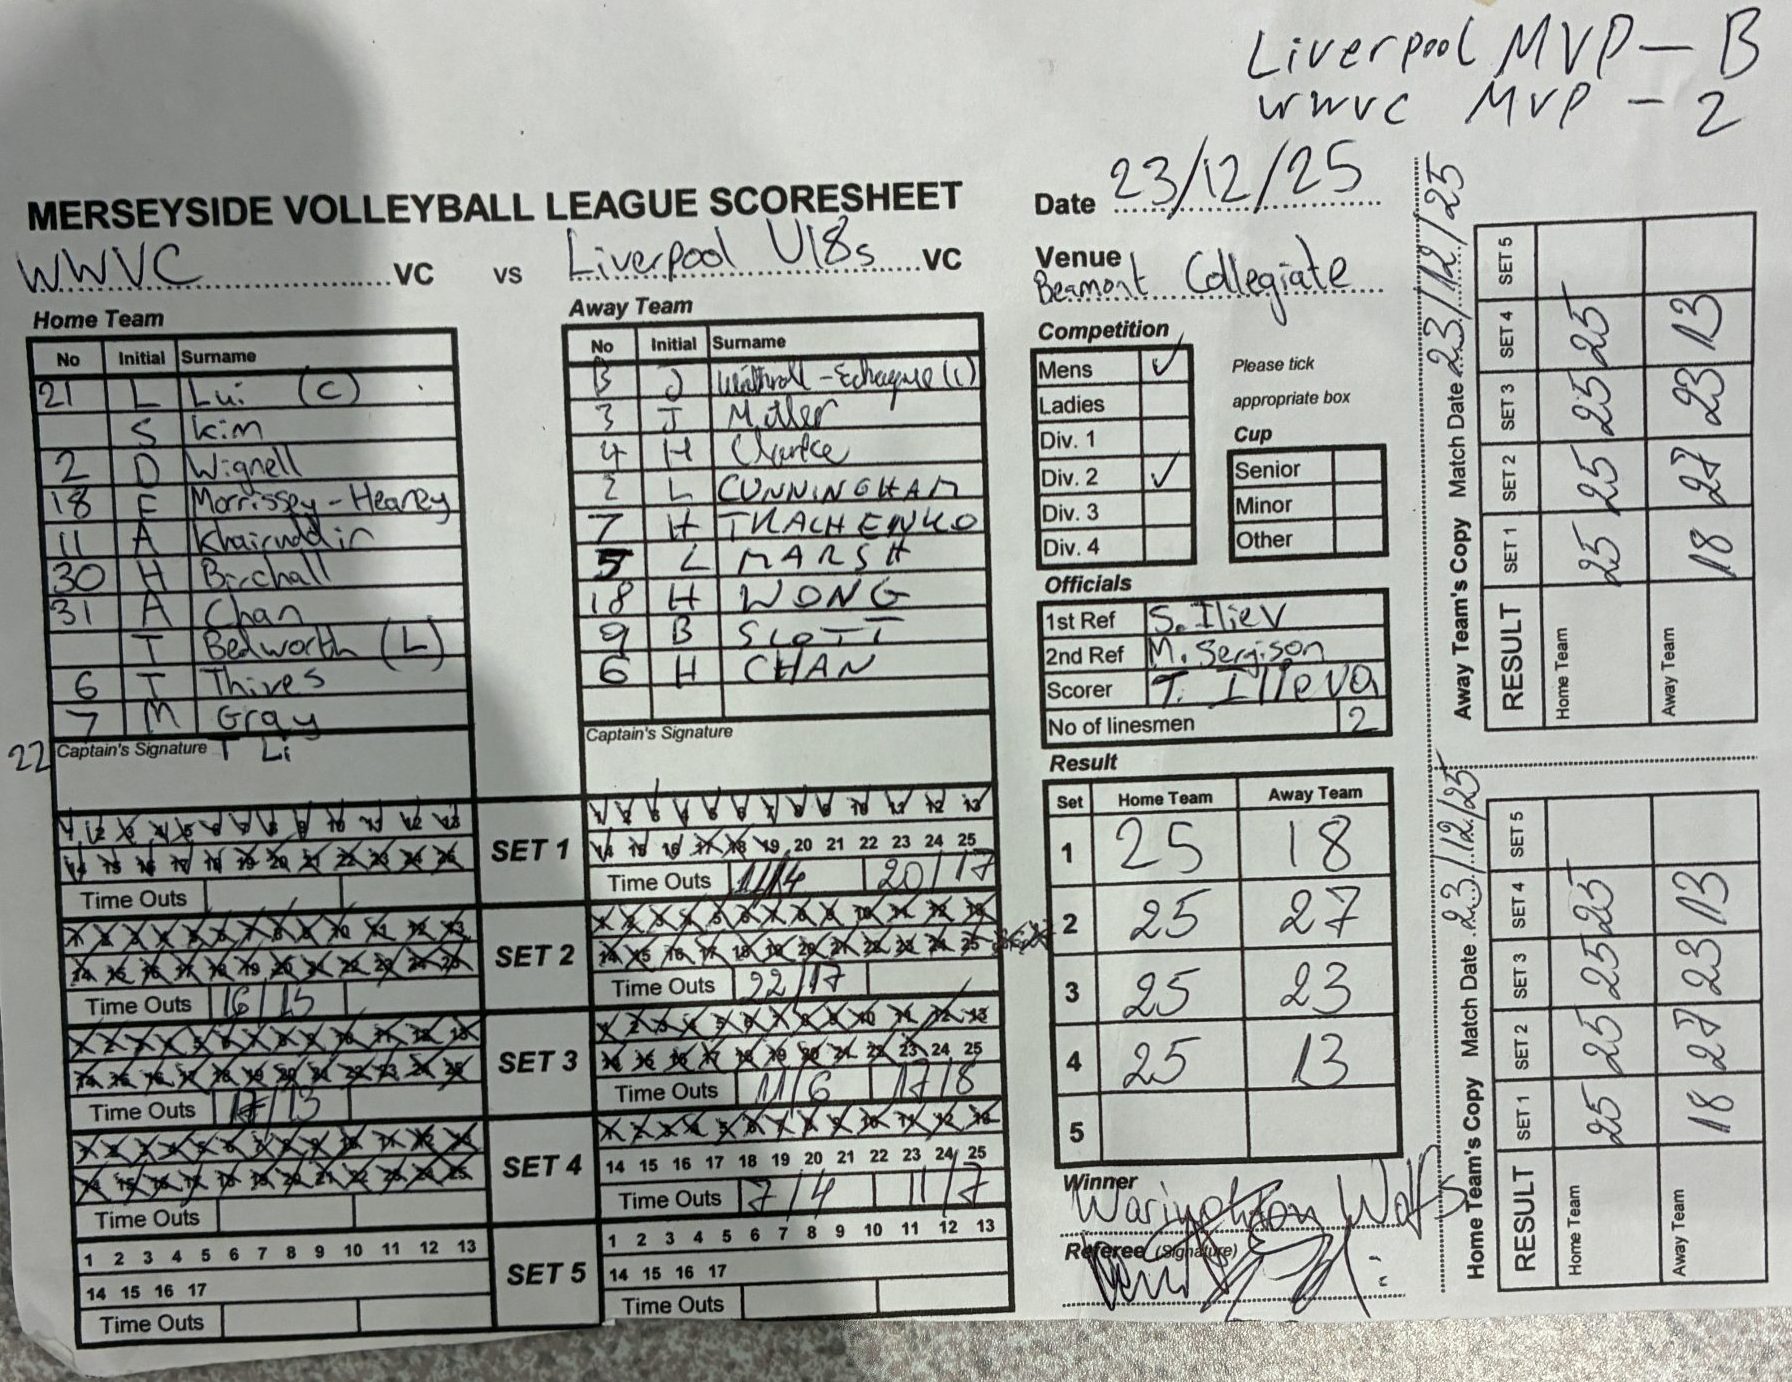 Liverpool MVP - B
WWVC MVP - 2
MERSEYSIDE VOLLEYBALL LEAGUE SCORESHEET
WWVC VC vs Liverpool U18s VC
Home Team
No Initial Surname
21 L Lui (C)
S Kim
2 D Wignell
18 F Morrissey-Heaney
11 A Khairuddin
30 H Birchall
31 A Chan
T Bedworth (L)
6 T Thives
7 M Gray
22 T Li
Captain's Signature
Away Team
No Initial Surname
B J -Echague (C)
3 J Miller
4 H Clarke
2 L CUNNINGHAM
7 H TKACHENKO
5 L MARSH
18 H WONG
9 B SCOTT
6 H CHAN
Captain's Signature
SET 1
1 2 3 4 5 6 7 8 9 10 11 12 13
14 15 16 17 18 19 20 21 22 23 24 25
Time Outs
1 2 3 4 5 6 7 8 9 10 11 12 13
14 15 16 17 18 19 20 21 22 23 24 25
Time Outs 11/14 20/17
SET 2
1 2 3 4 5 6 7 8 9 10 11 12 13
14 15 16 17 18 19 20 21 22 23 24 25
Time Outs 16/15
1 2 3 4 5 6 7 8 9 10 11 12 13
14 15 16 17 18 19 20 21 22 23 24 25
Time Outs 22/17
SET 3
1 2 3 4 5 6 7 8 9 10 11 12 13
14 15 16 17 18 19 20 21 22 23 24 25
Time Outs 17/13
1 2 3 4 5 6 7 8 9 10 11 12 13
14 15 16 17 18 19 20 21 22 23 24 25
Time Outs 11/6 17/8
SET 4
1 2 3 4 5 6 7 8 9 10 11 12 13
14 15 16 17 18 19 20 21 22 23 24 25
Time Outs
1 2 3 4 5 6 7 8 9 10 11 12 13
14 15 16 17 18 19 20 21 22 23 24 25
Time Outs 7/4 11/7
SET 5
1 2 3 4 5 6 7 8 9 10 11 12 13
14 15 16 17
Time Outs
1 2 3 4 5 6 7 8 9 10 11 12 13
14 15 16 17
Time Outs
Date 23/12/25
Venue
Beamont Collegiate
Competition
Mens ✓
Ladies
Div. 1
Div. 2 ✓
Div. 3
Div. 4
Please tick
appropriate box
Cup
Senior
Minor
Other
Officials
1st Ref S. Iliev
2nd Ref M. Sergison
Scorer T. Ilieva
No of linesmen 2
Result
Set Home Team Away Team
1 25 18
2 25 27
3 25 23
4 25 13
5
Winner
Warington Wolfs
Referee (Signature)
Away Team's Copy Match Date 23/12/25
RESULT SET 1 SET 2 SET 3 SET 4 SET 5
Home Team 25 25 25 25
Away Team 18 27 23 13
Home Team's Copy Match Date 23/12/25
RESULT SET 1 SET 2 SET 3 SET 4 SET 5
Home Team 25 25 25 25
Away Team 18 27 23 13